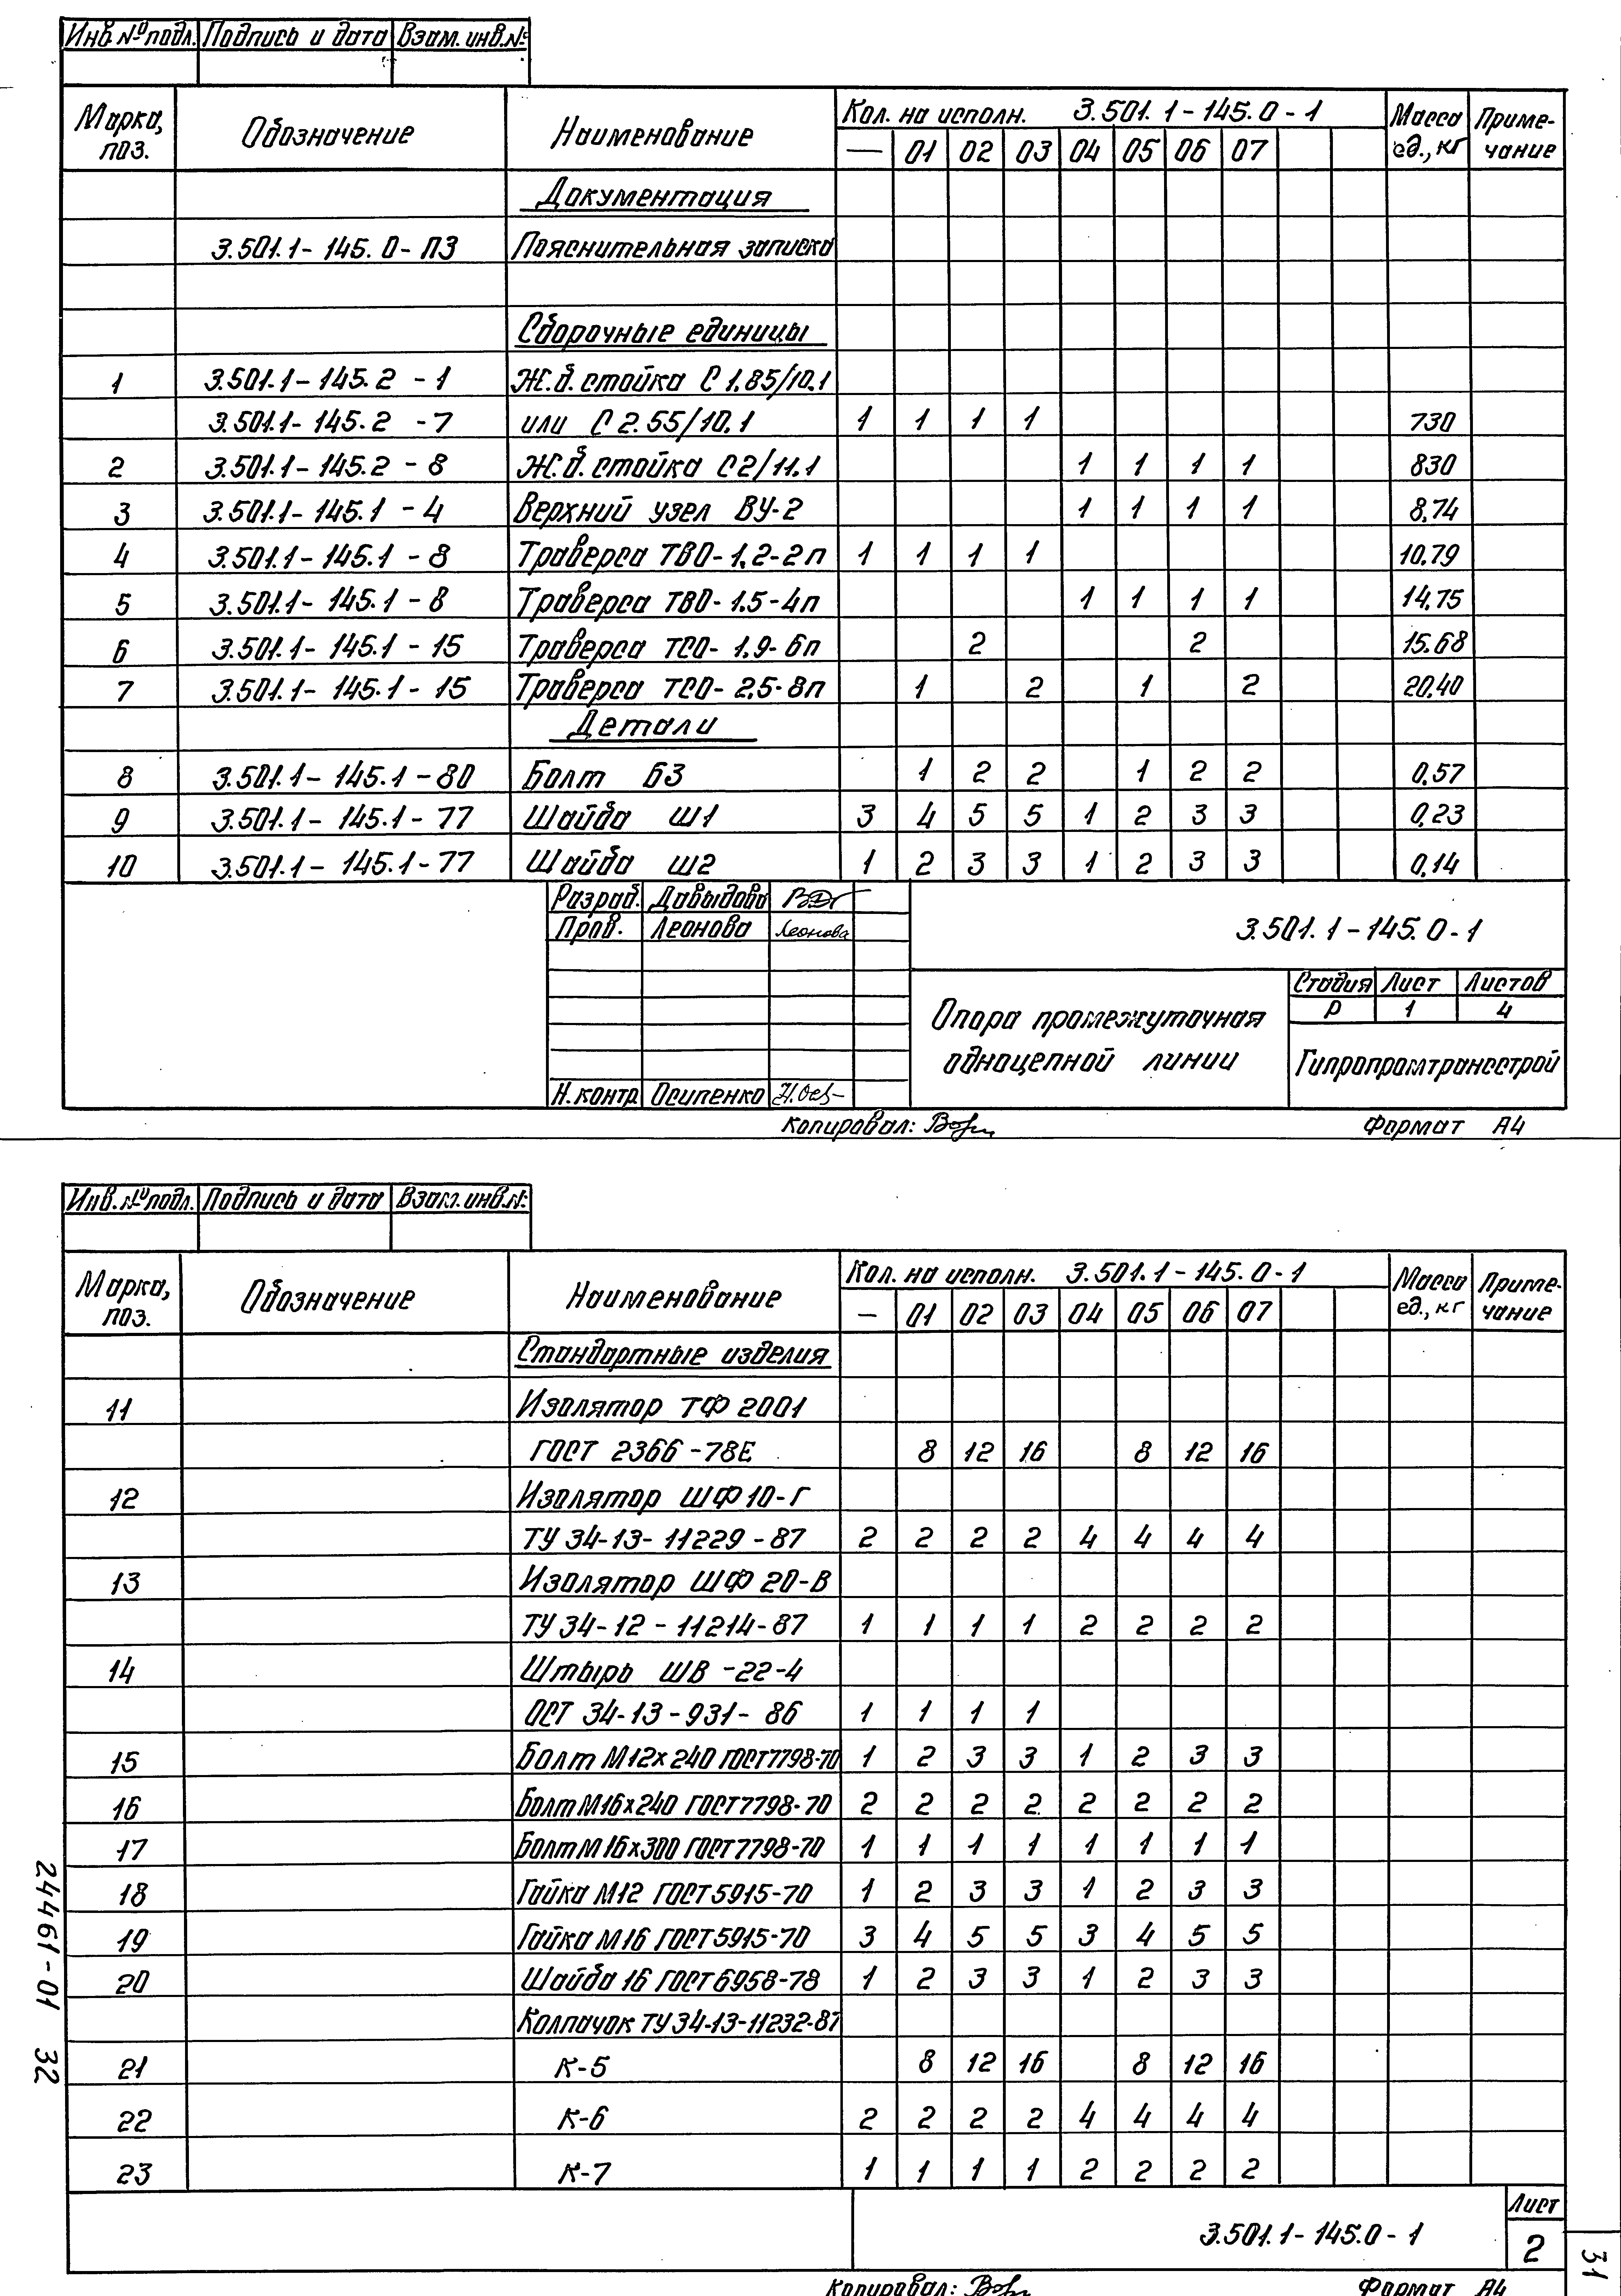 Инв. № подл. Подпись и дата Взам. инв. №
Марка, поз. Обозначение Наименование Кол. на исполн. 3.501.1-145.0-1 Масса ед., кг Примечание
— 01 02 03 04 05 06 07
Документация
3.501.1-145.0-ПЗ Пояснительная записка
Сборочные единицы
1 3.501.1-145.2-1 Ж.б. стойка С 1.85/10.1
3.501.1-145.2-7 или С 2.55/10.1 1 1 1 1 730
2 3.501.1-145.2-8 Ж.б. стойка С2/11.1 1 1 1 1 830
3 3.501.1-145.1-4 Верхний узел ВУ-2 1 1 1 1 8,74
4 3.501.1-145.1-8 Траверса ТВО-1,2-2п 1 1 1 1 10,79
5 3.501.1-145.1-8 Траверса ТВО-1.5-4п 1 1 1 1 14,75
6 3.501.1-145.1-15 Траверса ТСО-1.9-6п 2 2 15.68
7 3.501.1-145.1-15 Траверса ТСО-2.5-8п 1 2 1 2 20,40
Детали
8 3.501.1-145.1-80 Болт Б3 1 2 2 1 2 2 0,57
9 3.501.1-145.1-77 Шайба Ш1 3 4 5 5 1 2 3 3 0,23
10 3.501.1-145.1-77 Шайба Ш2 1 2 3 3 1 2 3 3 0,14
Разраб. Давыдова
Пров. Леонова Леонова
3.501.1-145.0-1
Опора промежуточная
одноцепной линии
Стадия Лист Листов
Р 1 4
Гипропромтрансстрой
Н. контр Осипенко
Копировал: Формат А4
Инв. № подл. Подпись и дата Взам. инв. №
Марка, поз. Обозначение Наименование Кол. на исполн. 3.501.1-145.0-1 Масса ед., кг Примечание
— 01 02 03 04 05 06 07
Стандартные изделия
11 Изолятор ТФ 2001
ГОСТ 2366-78Е 8 12 16 8 12 16
12 Изолятор ШФ 10-Г
ТУ 34-13-11229-87 2 2 2 2 4 4 4 4
13 Изолятор ШФ 20-В
ТУ 34-12-11214-87 1 1 1 1 2 2 2 2
14 Штырь ШВ-22-4
ОСТ 34-13-931-86 1 1 1 1
15 Болт М12х240 ГОСТ7798-70 1 2 3 3 1 2 3 3
16 Болт М16х240 ГОСТ7798-70 2 2 2 2 2 2 2 2
17 Болт М16х300 ГОСТ7798-70 1 1 1 1 1 1 1 1
18 Гайка М12 ГОСТ5915-70 1 2 3 3 1 2 3 3
19 Гайка М16 ГОСТ5915-70 3 4 5 5 3 4 5 5
20 Шайба 16 ГОСТ6958-78 1 2 3 3 1 2 3 3
Колпачок ТУ 34-13-11232-87
21 К-5 8 12 16 8 12 16
22 К-6 2 2 2 2 4 4 4 4
23 К-7 1 1 1 1 2 2 2 2
3.501.1-145.0-1 Лист 2
Копировал: Формат А4
24461-01 32
31